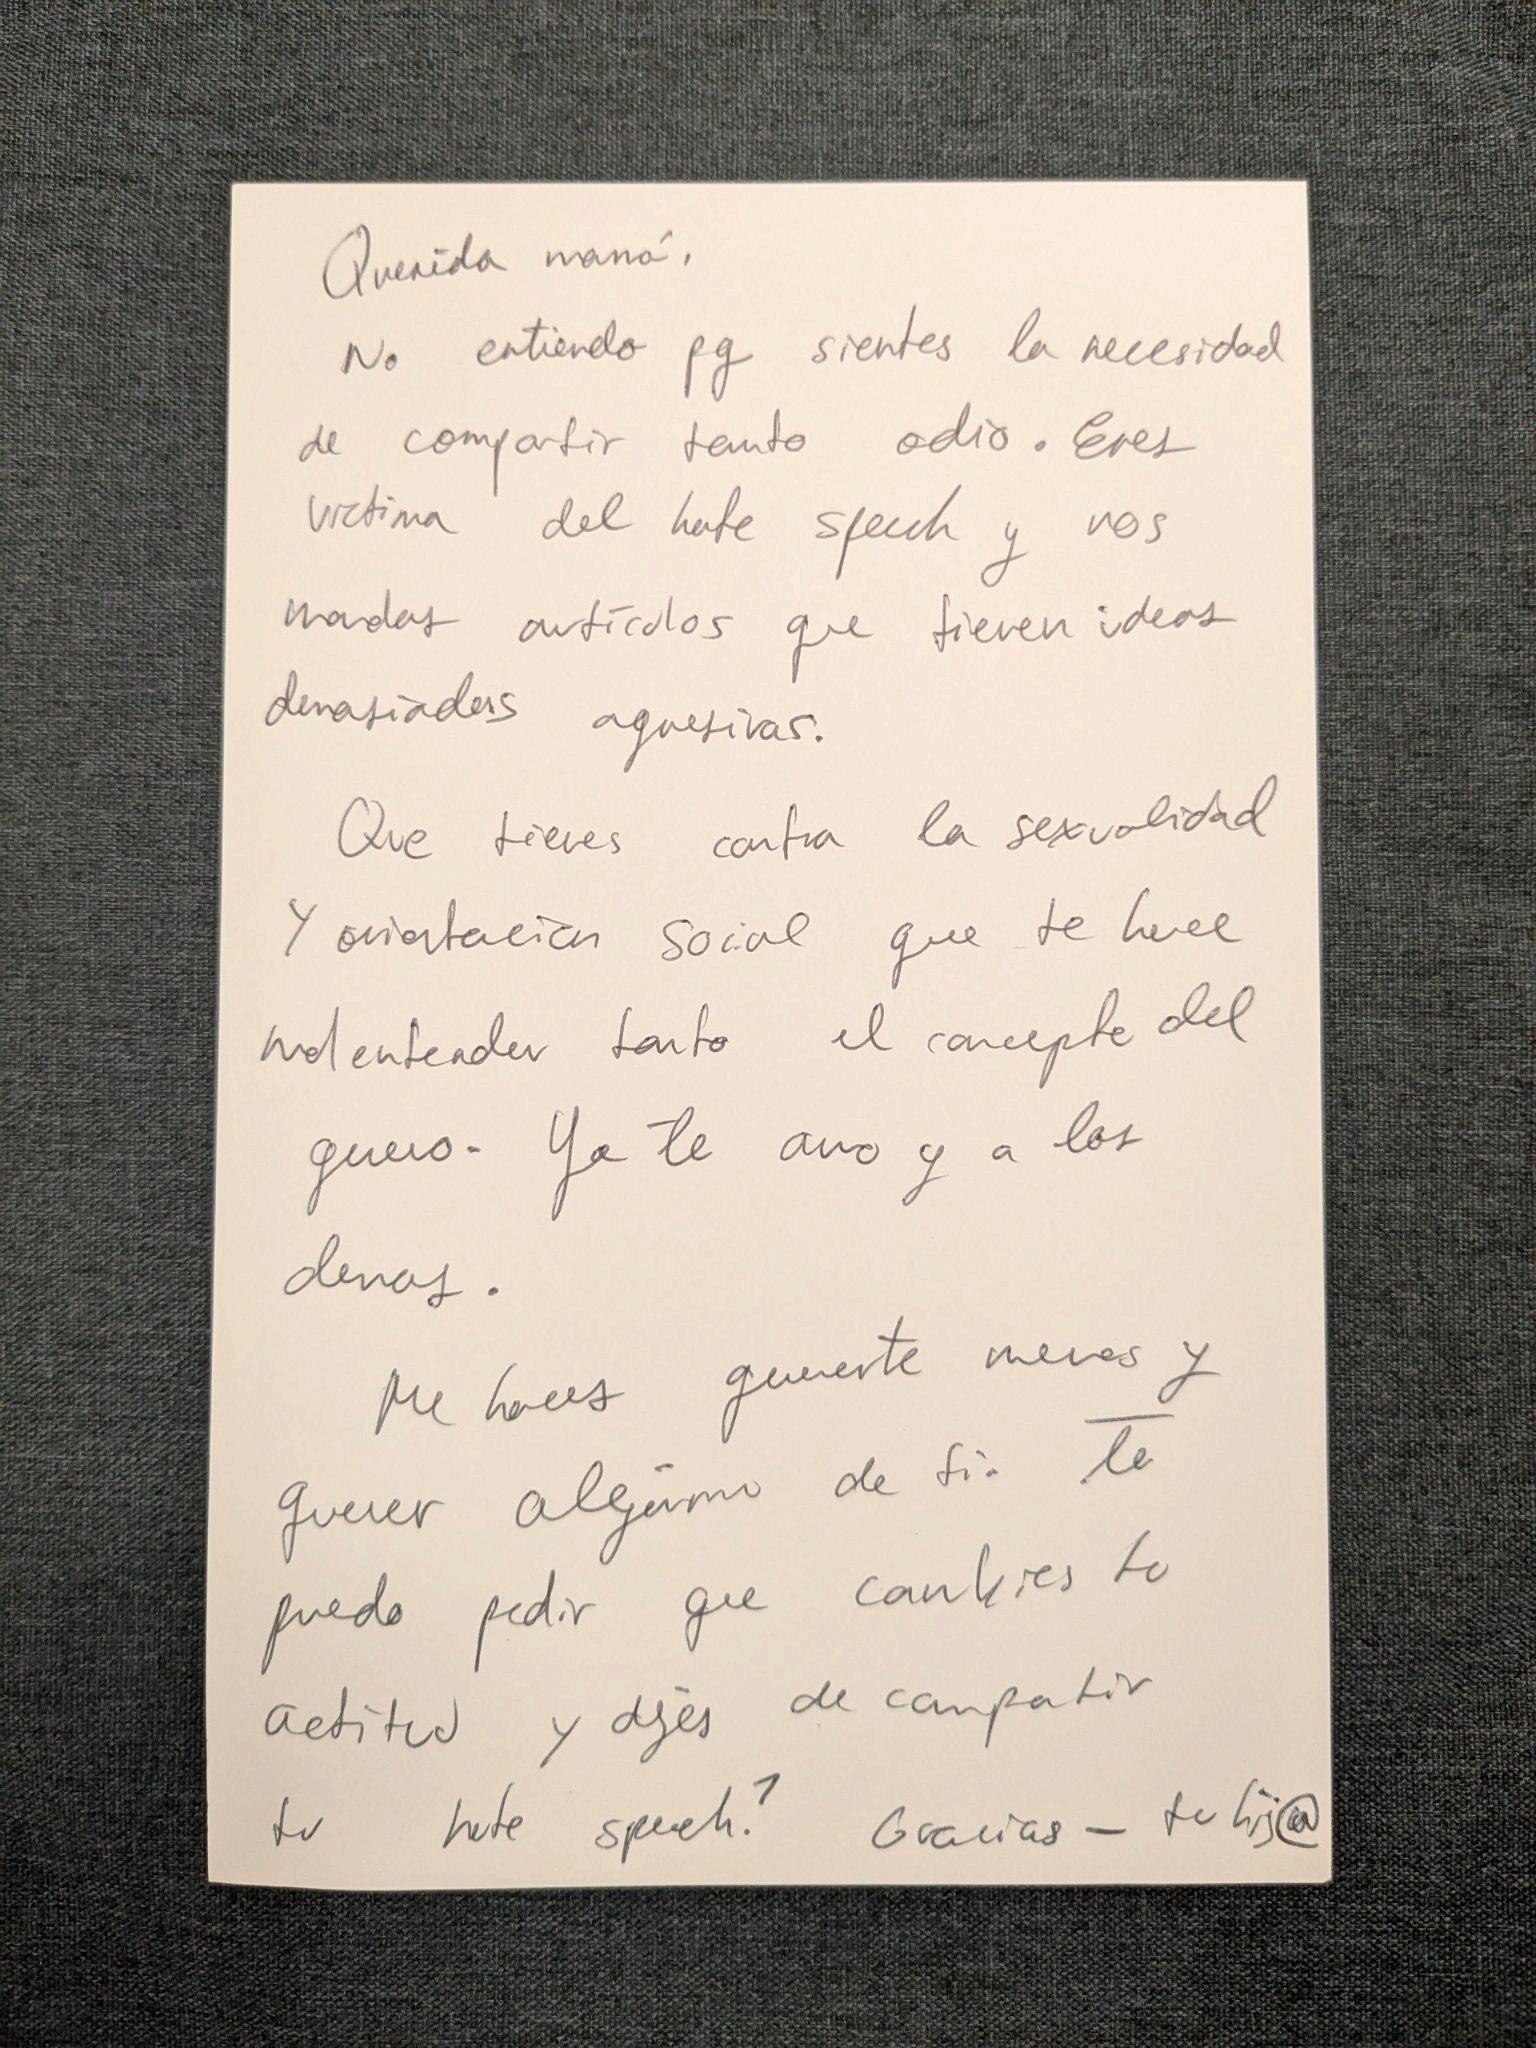 Querida mamá,
No entiendo pq sientes la necesidad
de compartir tanto odio. Eres
victima del hate speech y nos
mandas artículos que tienen ideas
demasiadas agresivas.
Que tienes contra la sexualidad
Y orientación social que te hace
malentender tanto el concepto del
genero. Yo te amo y a los
demas.
Me haces quererte menos y
querer alejarme de ti. Te
puedo pedir que cambies tu
actitud y dejes de compartir
tu hate speech? Gracias - tu hij@